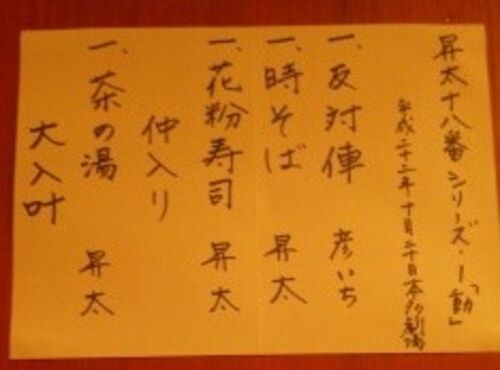 昇太十八番シリーズ・1「動」
平成二十二年十月二十日本多劇場
一、反対俥 彦いち
一、時そば 昇太
一、花粉寿司 昇太
仲入り
一、茶の湯 昇太
大入叶